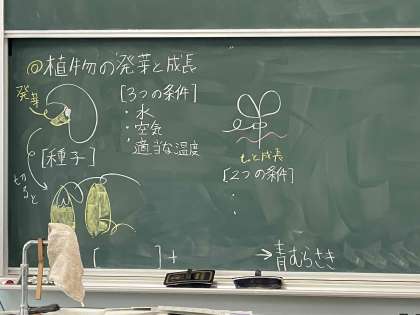 ◎植物の発芽と成長
発芽
[種子]
切ると
[3つの条件]
・水
・空気
・適当な温度
もっと成長
[2つの条件]
・
・
[ ]+ →青むらさき